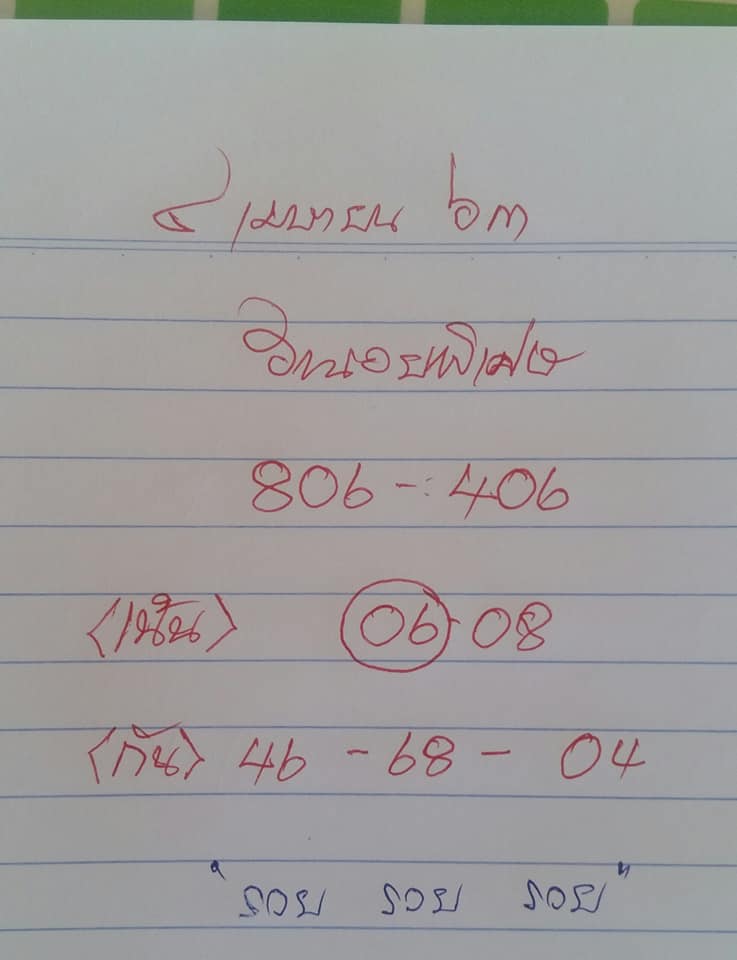 ๔ เมษายน ๖๓
ฮานอยพิเศษ
806 - 406
<เน้น> 06 - 08
<กัน> 46 - 68 - 04
"รวย รวย รวย"